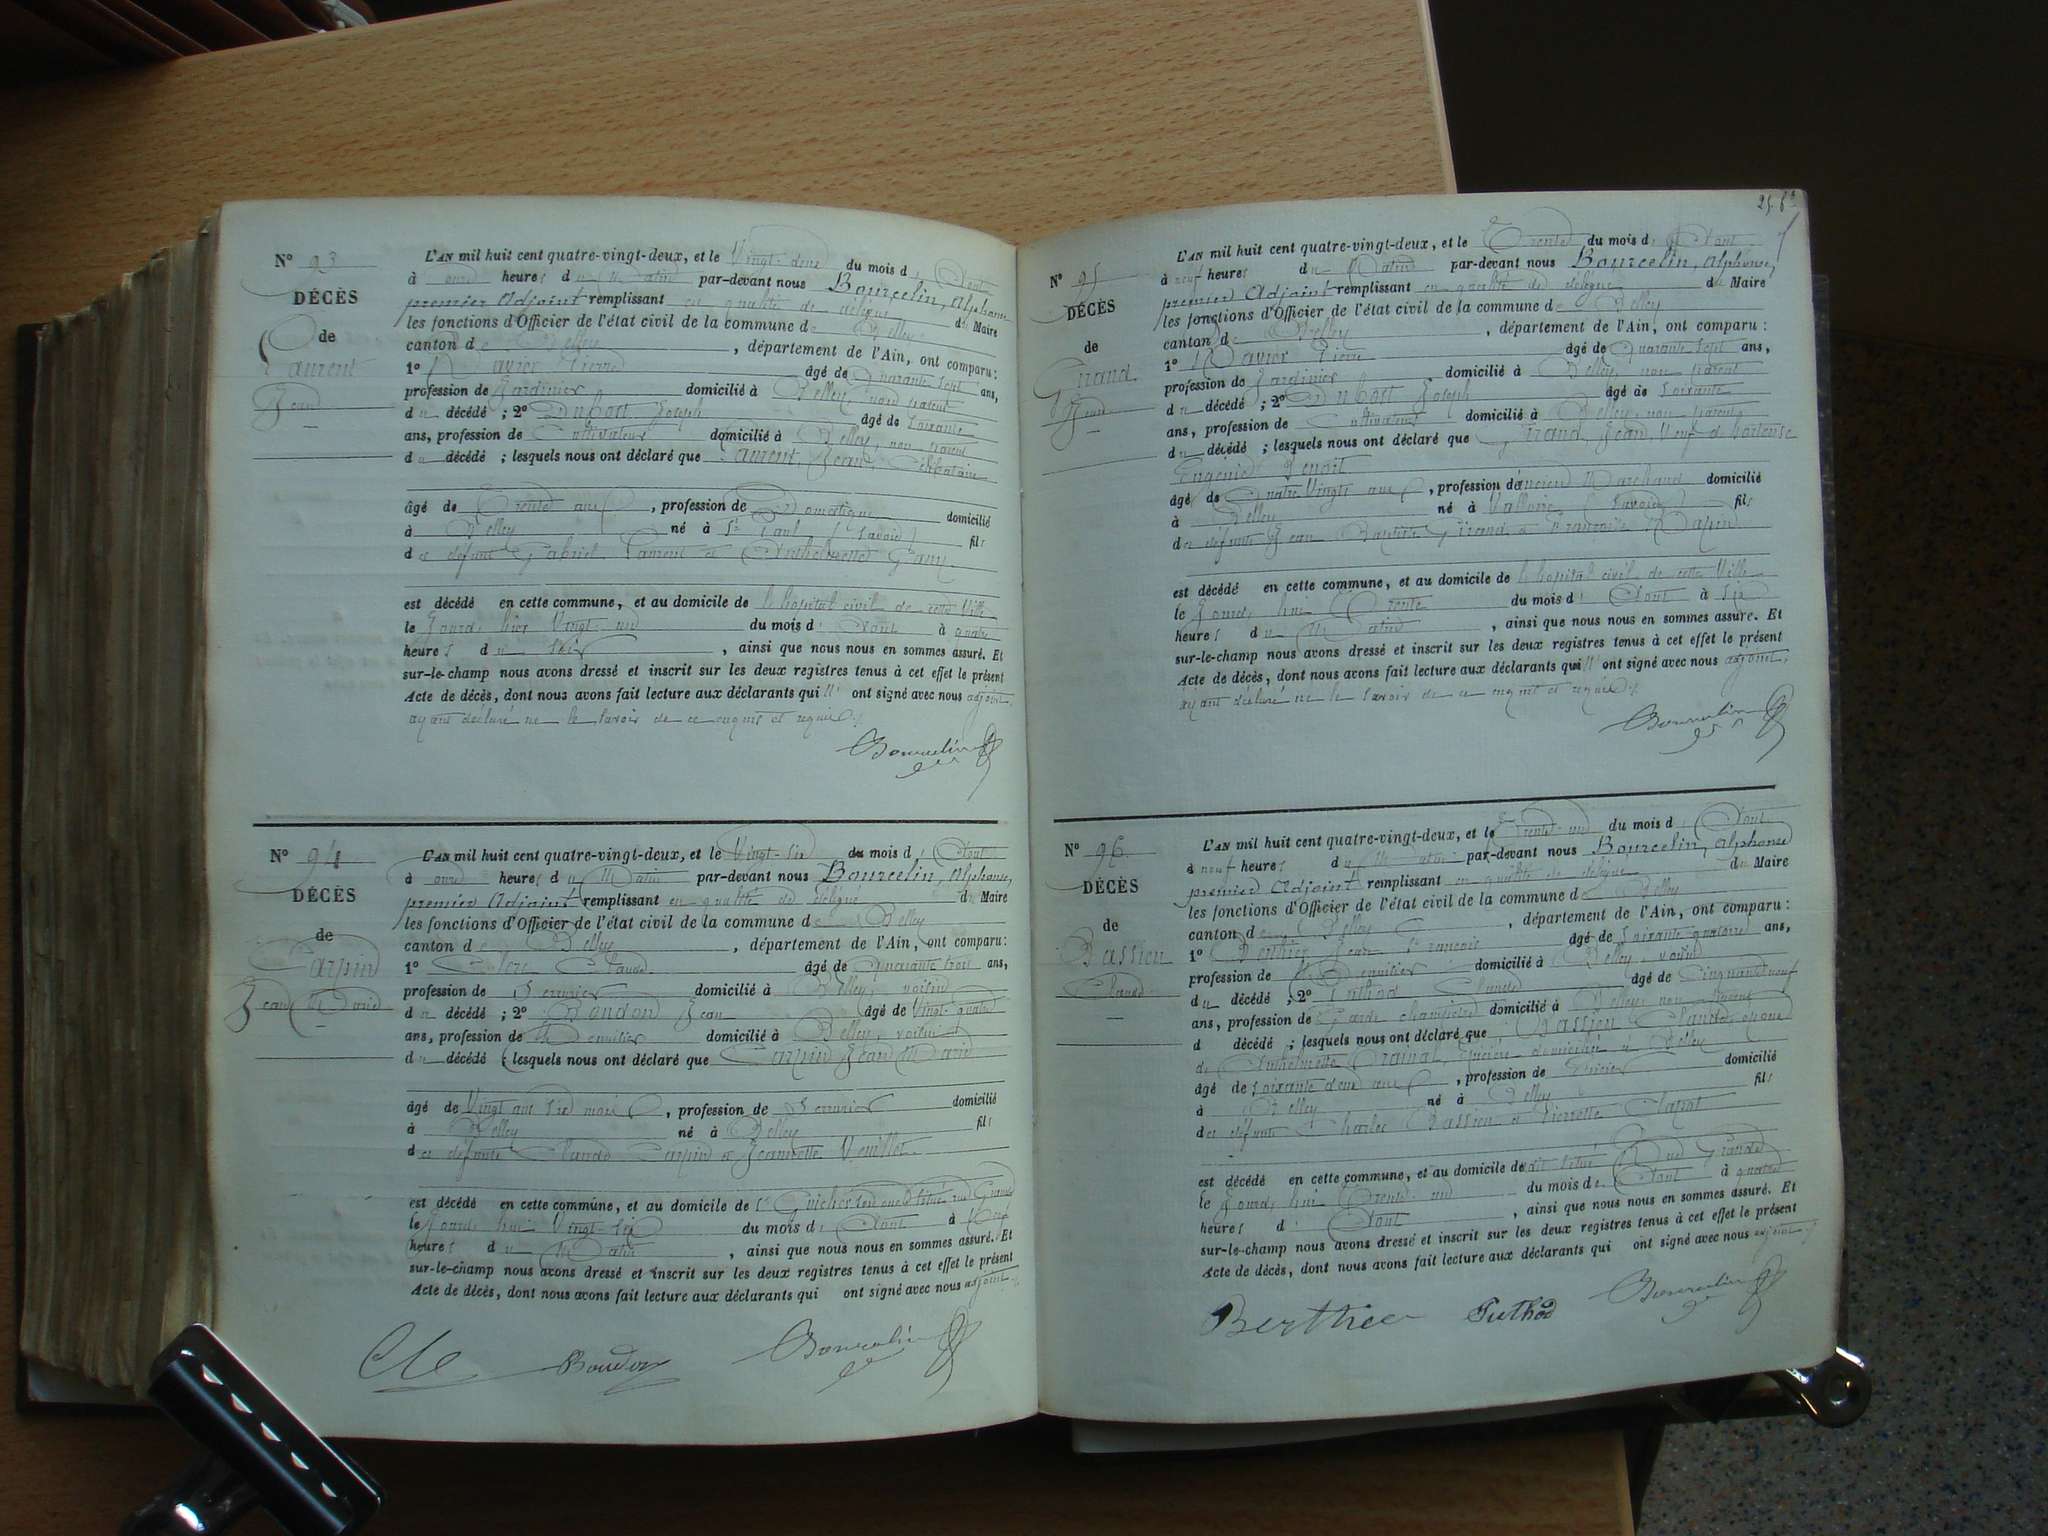 N° 93
DÉCÈS
de
Laurent
Jean
L'AN mil huit cent quatre-vingt-deux, et le Vingt-deux du mois d' Aout
à onze heures du Matin par-devant nous Bourcelin, Alphonse
premier Adjoint remplissant en qualité de délégué du Maire
les fonctions d'Officier de l'état civil de la commune de Belley
canton de Belley, département de l'Ain, ont comparu :
1° Pierre âgé de Quarante sept ans,
profession de Jardinier domicilié à Belley non parent
du décédé ; 2° Dubost Joseph âgé de Soixante
ans, profession de Cultivateur domicilié à Belley, non parent
du décédé ; lesquels nous ont déclaré que Laurent, Jean Célibataire
âgé de Trente ans, profession de Domestique domicilié
à Belley né à St Paul (Savoie) fils
de défunt Gabriel Laurent et Anthelmette
est décédé en cette commune, et au domicile de l'hopital civil de cette Ville
le Jour d'hier Vingt un du mois d' Aout à quatre
heures du soir, ainsi que nous nous en sommes assuré. Et
sur-le-champ nous avons dressé et inscrit sur les deux registres tenus à cet effet le présent
Acte de décès, dont nous avons fait lecture aux déclarants qui n'ont signé avec nous adjoint,
ayant déclaré ne le savoir de ce enquis et requis
Bourcelin
N° 94
DÉCÈS
de
Carpin
Jean Marie
L'AN mil huit cent quatre-vingt-deux, et le Vingt-six du mois d' Aout
à onze heures du Matin par-devant nous Bourcelin, Alphonse,
premier Adjoint remplissant en qualité de délégué du Maire
les fonctions d'Officier de l'état civil de la commune de Belley
canton de Belley, département de l'Ain, ont comparu :
1° Clerc Claude âgé de Quarante trois ans,
profession de Serrurier domicilié à Belley, voisin
du décédé ; 2° Bondon Jean âgé de Vingt-quatre
ans, profession de Menuisier domicilié à Belley, voisin
du décédé ; lesquels nous ont déclaré que Carpin Jean Marie
âgé de Vingt ans six mois, profession de Serrurier domicilié
à Belley né à Belley fils
de défunts Claude Carpin et Jeannette Veuillet
est décédé en cette commune, et au domicile de situé rue Grande
le Jourd'hui Vingt-six du mois d' Aout à Neuf
heures du Matin, ainsi que nous nous en sommes assuré. Et
sur-le-champ nous avons dressé et inscrit sur les deux registres tenus à cet effet le présent
Acte de décès, dont nous avons fait lecture aux déclarants qui ont signé avec nous adjoint.
Bourcelin
N° 95
DÉCÈS
de
Grand
Jean
L'AN mil huit cent quatre-vingt-deux, et le Trente du mois d' Aout
à neuf heures du Matin par-devant nous Bourcelin, Alphonse,
premier Adjoint remplissant en qualité de délégué du Maire
les fonctions d'Officier de l'état civil de la commune de Belley
canton de Belley, département de l'Ain, ont comparu :
1° Pierre âgé de Quarante sept ans,
profession de Jardinier domicilié à Belley, non parent
du décédé ; 2° Dubost Joseph âgé de Soixante
ans, profession de Cultivateur domicilié à Belley, non parent
du décédé ; lesquels nous ont déclaré que Grand, Jean, Veuf d'hortense
Eugénie Benoit
âgé de Quatre Vingts ans, profession d'ancien Marchand domicilié
à Belley né à Valloire (Savoie) fils
de défunts Jean Baptiste Grand et Françoise
est décédé en cette commune, et au domicile de l'hopital civil de cette Ville
le Jourd'hui Trente du mois d' Aout à six
heures du Matin, ainsi que nous nous en sommes assuré. Et
sur-le-champ nous avons dressé et inscrit sur les deux registres tenus à cet effet le présent
Acte de décès, dont nous avons fait lecture aux déclarants qui n'ont signé avec nous adjoint,
ayant déclaré ne le savoir de ce enquis et requis
Bourcelin
N° 96
DÉCÈS
de
Bassien
Claude
L'AN mil huit cent quatre-vingt-deux, et le Trente-un du mois d' Aout
à neuf heures du Matin par-devant nous Bourcelin, Alphonse
premier Adjoint remplissant en qualité de délégué du Maire
les fonctions d'Officier de l'état civil de la commune de Belley
canton de Belley, département de l'Ain, ont comparu :
1° Berthier Jean François âgé de Soixante quatorze ans,
profession de Menuisier domicilié à Belley, voisin
du décédé ; 2° Puthod Claude âgé de Cinquante neuf
ans, profession de Garde champêtre domicilié à Belley, non parent
d décédé ; lesquels nous ont déclaré que Bassien Claude époux
de Anthelmette domiciliée à Belley
âgé de Soixante deux ans, profession de Epicier domicilié
à Belley né à Belley fils
de défunts Charles Bassien et Pierrette
est décédé en cette commune, et au domicile de situé Rue Grande
le Jourd'hui Trente-un du mois d' Aout à quatre
heures d' Aout, ainsi que nous nous en sommes assuré. Et
sur-le-champ nous avons dressé et inscrit sur les deux registres tenus à cet effet le présent
Acte de décès, dont nous avons fait lecture aux déclarants qui ont signé avec nous adjoint
Berthier Puthod Bourcelin